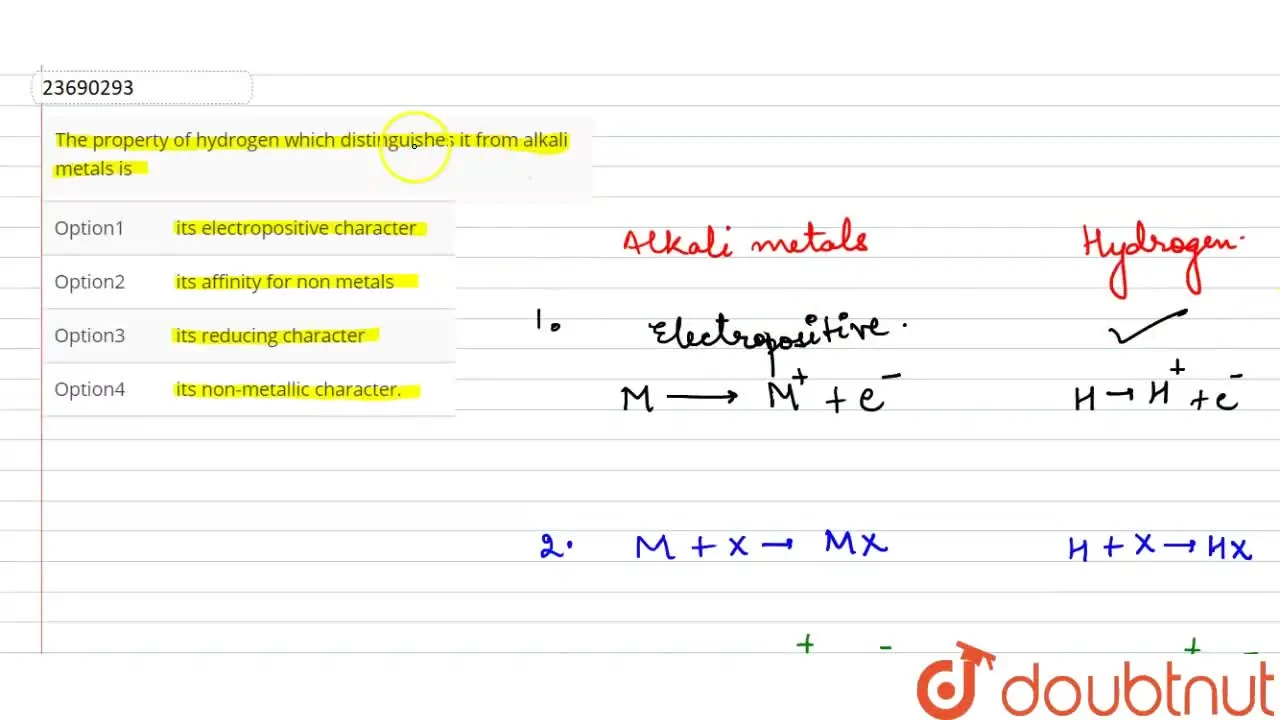 23690293
The property of hydrogen which distinguishes it from alkali
metals is
Option1 its electropositive character
Option2 its affinity for non metals
Option3 its reducing character
Option4 its non-metallic character.
Alkali metals Hydrogen.
1. Electropositive. ✓
M → M⁺ + e⁻ H → H⁺ + e⁻
2. M + X → MX H + X → HX
+ - + -
doubtnut